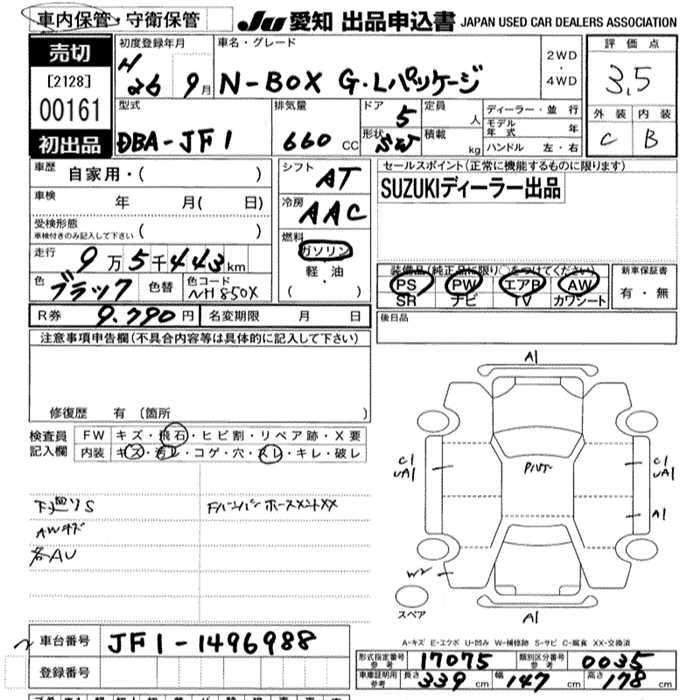 車内保管・守衛保管
JU 愛知 出品申込書 JAPAN USED CAR DEALERS ASSOCIATION
売切
[2128]
00161
初出品
初度登録年月
H 26 9月
車名・グレード
N-BOX G・Lパッケージ
2WD
・
4WD
評価点
3.5
外装 内装
C B
型式
DBA-JF1
排気量
660 CC
ドア 5
形状 SW
定員 人
積載 kg
ディーラー・並行
モデル年式 年
ハンドル 左・右
車歴 自家用・( )
車検 年 月( 日)
受検形態
車検付きのみ記入して下さい ( )
走行
9万5千443km
色 ブラック 色替 色コード NH850X
シフト AT
冷房 AAC
燃料
ガソリン
軽油
( ・ )
セールスポイント(正常に機能するものに限ります)
SUZUKIディーラー出品
装備品(純正品に限り○をつけてください)
PS PW エアB AW
SR ナビ TV カワシート
新車保証書
有・無
R券 9.790円 名変期限 月 日
後日品
注意事項申告欄(不具合内容等は具体的に記入して下さい)
修復歴 有 (箇所 )
検査員記入欄
FW キズ・飛石・ヒビ割・リペア跡・X要
内装 キズ・汚レ・コゲ・穴・スレ・キレ・破レ
下廻りS
AWキズ
各AU
A1
C1
UA1
C1
UA1
A1
W2
A1
スペア
A-キズ E-エクボ U-凹み W-補修跡 S-サビ C-腐食 XX-交換済
車台番号 JF1-1496988
登録番号
形式指定番号 参考 17075 類別区分番号 参考 0035
車庫証明用 参考 長さ 339cm 幅 147cm 高さ 178cm